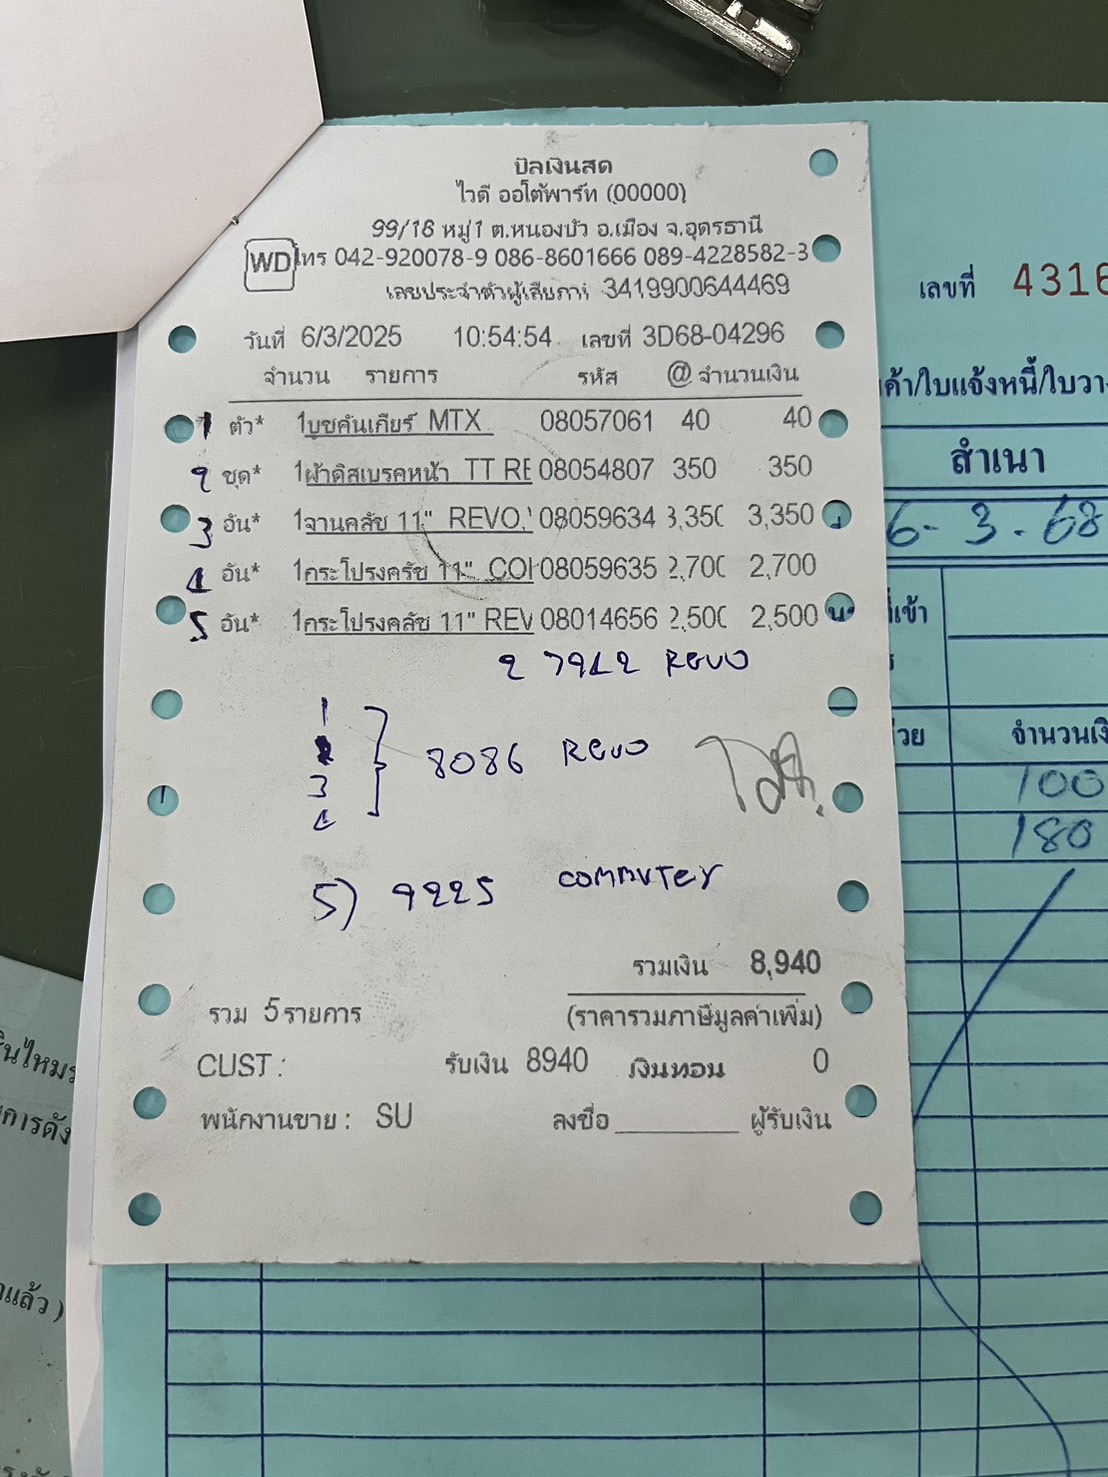 บิลเงินสด
ไวดี ออโต้พาร์ท (00000)
99/18 หมู่1 ต.หนองบัว อ.เมือง จ.อุดรธานี
WD โทร 042-920078-9 086-8601666 089-4228582-3
เลขประจำตัวผู้เสียภาษี 3419900644469
วันที่ 6/3/2025 10:54:54 เลขที่ 3D68-04296
จำนวน รายการ รหัส @ จำนวนเงิน
1 ตัว* 1บูชคันเกียร์ MTX 08057061 40 40
2 ชุด* 1ผ้าดิสเบรคหน้า TT RE 08054807 350 350
3 อัน* 1จานคลัช 11" REVO, 08059634 3,350 3,350
4 อัน* 1กระโปรงครัช 11" COI 08059635 2,700 2,700
5 อัน* 1กระโปรงคลัช 11" REV 08014656 2,500 2,500
2 7912 REVO
1
3 } 8086 REVO
4
5) 9225 commuter
รวมเงิน 8,940
รวม 5รายการ (ราคารวมภาษีมูลค่าเพิ่ม)
CUST : รับเงิน 8940 เงินทอน 0
พนักงานขาย : SU ลงชื่อ ผู้รับเงิน
เลขที่ 4316
ค้า/ใบแจ้งหนี้/ใบวา
สำเนา
6-3-68
ที่เข้า
วย จำนวนเงิ
100
180
ินไหม
การดัง
แล้ว )